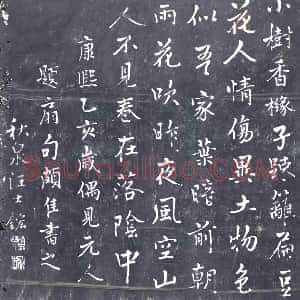 小樹香橼子短籬扁豆
花人情傷異土物色
似吾家葉暗前朝
雨花吹昨夜風空山
人不見春在洛陰中
康熙乙亥歲偶見元人
題扇句頗佳書之
秋泉汪士鋐